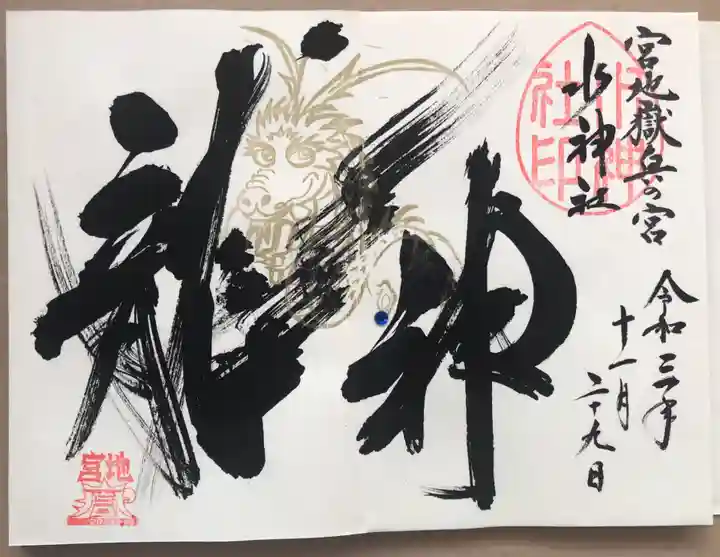 宮地嶽奥の宮
水神社
水神
社印
令和三年
十一月
二十九日
龍神